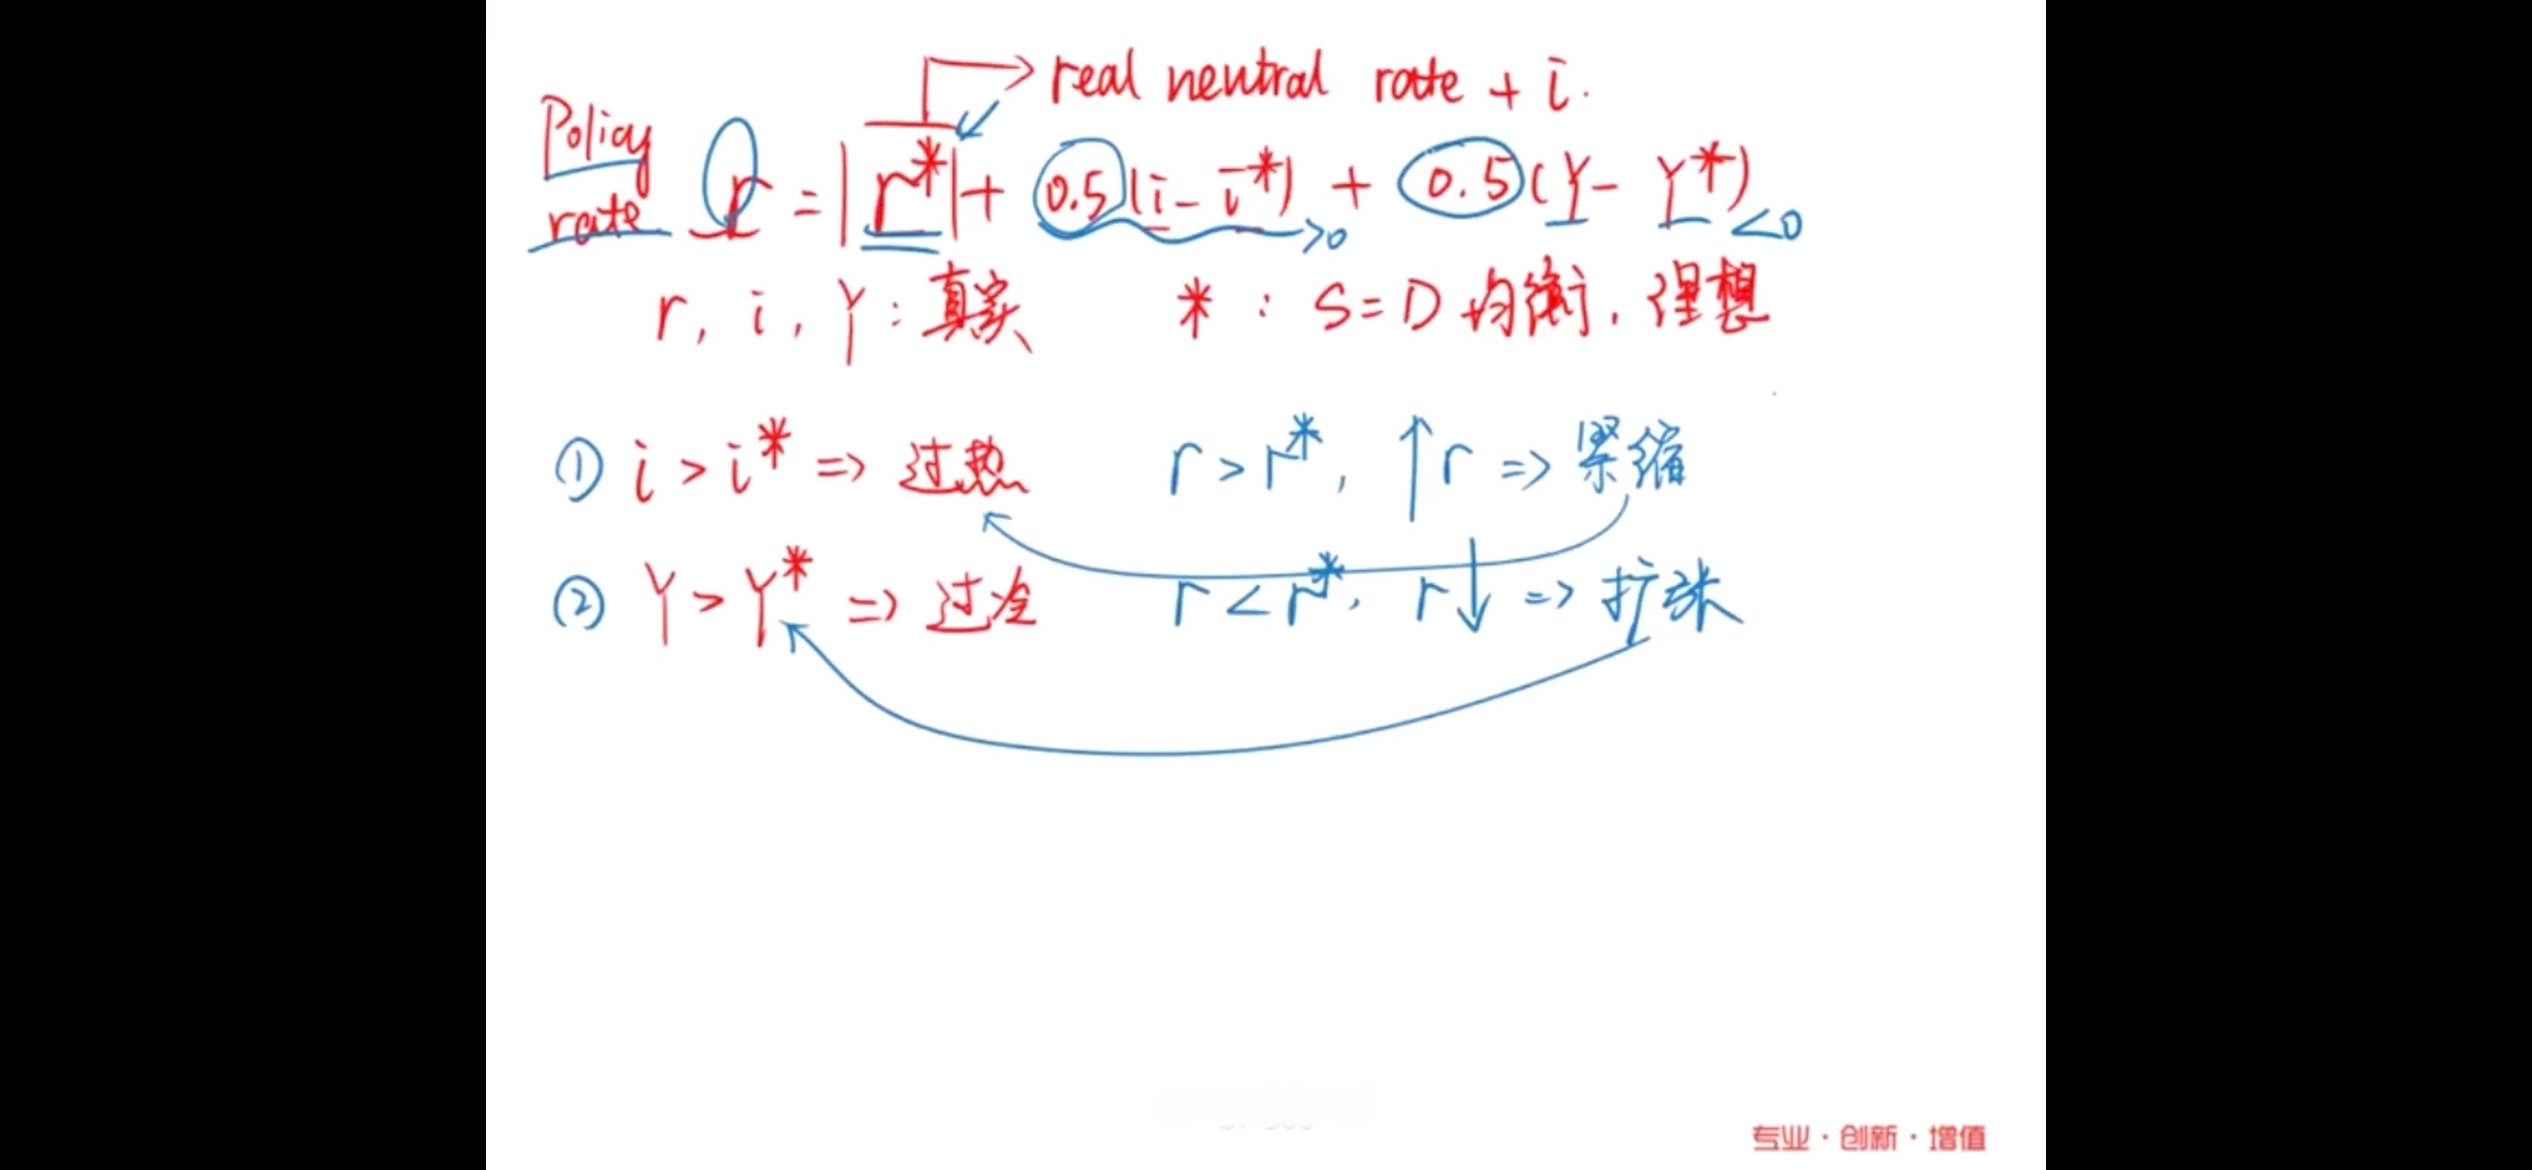 real neutral rate + i.
Policy rate r = |r*| + 0.5(i - i*) + 0.5(Y - Y*)
>0 <0
r, i, Y : 真实 * : S = D 均衡, 理想
① i > i* => 过热 r > r*, ↑r => 紧缩
② Y > Y* => 过冷 r < r*, r↓ => 扩张
专业·创新·增值